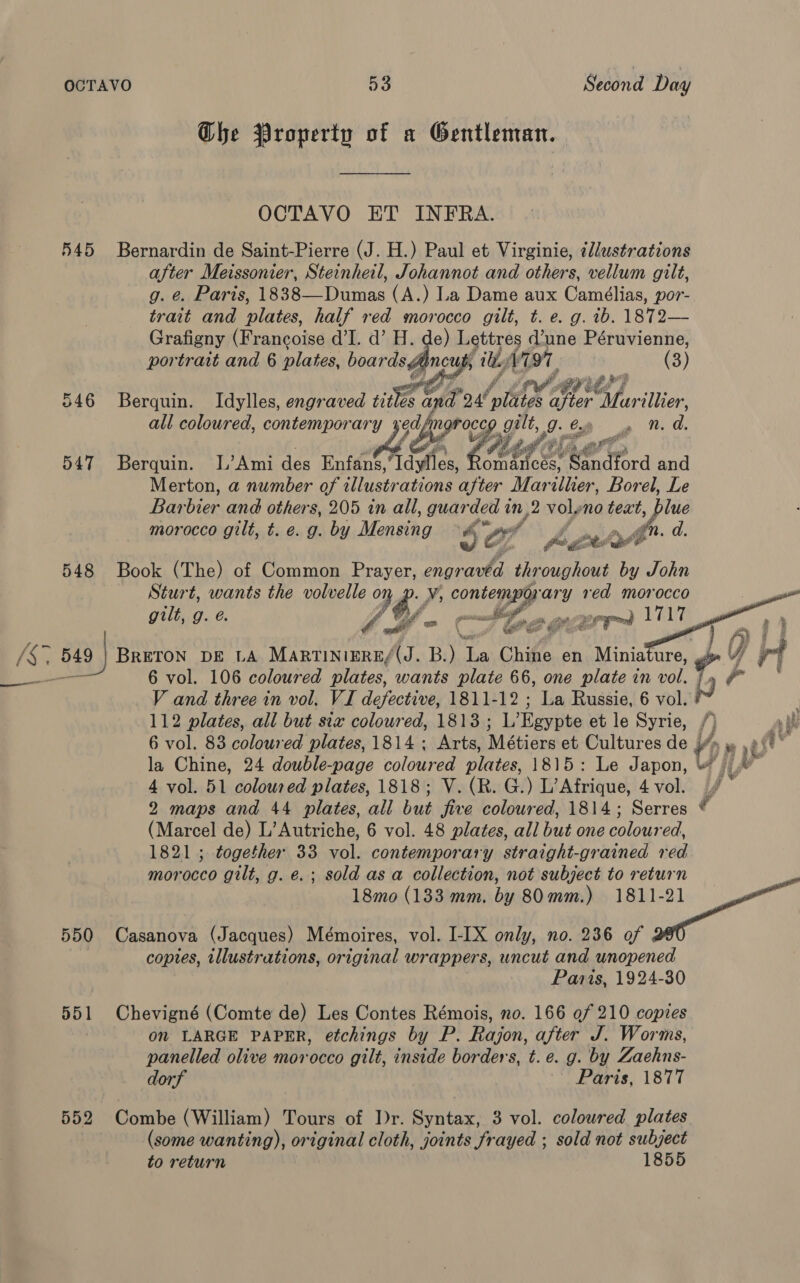 OCTAVO 53 Second Day
The Property of a Gentleman.
OCTAVO ET INFRA.
545 Bernardin de Saint-Pierre (J. H.) Paul et Virginie, illustrations
after Meissonier, Steinheil, Johannot and others, vellum gilt,
g. e. Paris, 1838—Dumas (A.) La Dame aux Camélias, por-
trait and plates, half red morocco gilt, t. e. g. ib. 1872—
Grafigny (Françoise d'I. d' H. de) Lettres d'une Péruvienne,
portrait and 6 plates, boards uncut, ib. 1797 (3)
546 Berquin. Idylles, engraved titles and 24 plates after Marillier,
all coloured, contemporary red morocco gilt, g. e. n. d.
547 Berquin. L'Ami des Enfans, Idylles, Romances, Sandford and
Merton, a number of illustrations after Marillier, Borel, Le
Barbier and others, 205 in all, guarded in 2 vol. no text, blue
morocco gilt, t. e. g. by Mensing n. d.
548 Book (The) of Common Prayer, engraved throughout by John
Sturt, wants the volvelle on p. V, contemporary red morocco
gilt, g. e. 1717
549 BRETON DE LA MARTINIERE (J. B.) La Chine en Miniature,
6 vol. 106 coloured plates, wants plate 66, one plate in vol.
V and three in vol. VI defective, 1811-12 ; La Russie, 6 vol.
112 plates, all but six coloured, 1813 ; L'Egypte et le Syrie,
6 vol. 83 coloured plates, 1814 ; Arts, Métiers et Cultures de
la Chine, 24 double-page coloured plates, 1815: Le Japon,
4 vol. 51 coloured plates, 1818; V. (R. G.) L'Afrique, 4 vol.
2 maps and 44 plates, all but five coloured, 1814; Serres
(Marcel de) L'Autriche, 6 vol. 48 plates, all but one coloured,
1821 ; together 33 vol. contemporary straight-grained red
morocco gilt, g. e. ; sold as a collection, not subject to return
18mo (133 mm. by 80mm.) 1811-21
550 Casanova (Jacques) Mémoires, vol. I-IX only, no. 236 of
copies, illustrations, original wrappers, uncut and unopened
Paris, 1924-30
551 Chevigné (Comte de) Les Contes Rémois, no. 166 of 210 copies
on LARGE PAPER, etchings by P. Rajon, after J. Worms,
panelled olive morocco gilt, inside borders, t. e. g. by Zaehns-
dorf Paris, 1877
552 Combe (William) Tours of Dr. Syntax, 3 vol. coloured plates
(some wanting), original cloth, joints frayed ; sold not subject
to return 1855